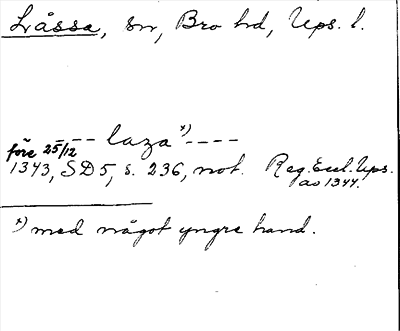 Låssa, sn, Bro hd, Ups. l.
--- laza x) ----
före 25/12
1343, SD 5, s. 236, not. Reg. Eccl. Ups.
ao 1344.
x) med något yngre hand.